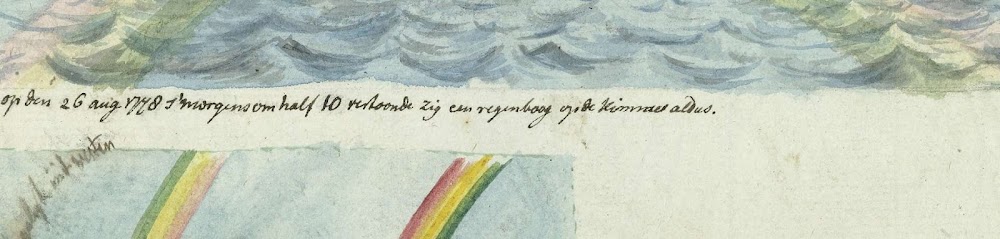 op den 26 aug 1778 s'morgens om half 10 vertoonde zig een regenboog op de Kimmes aldus.